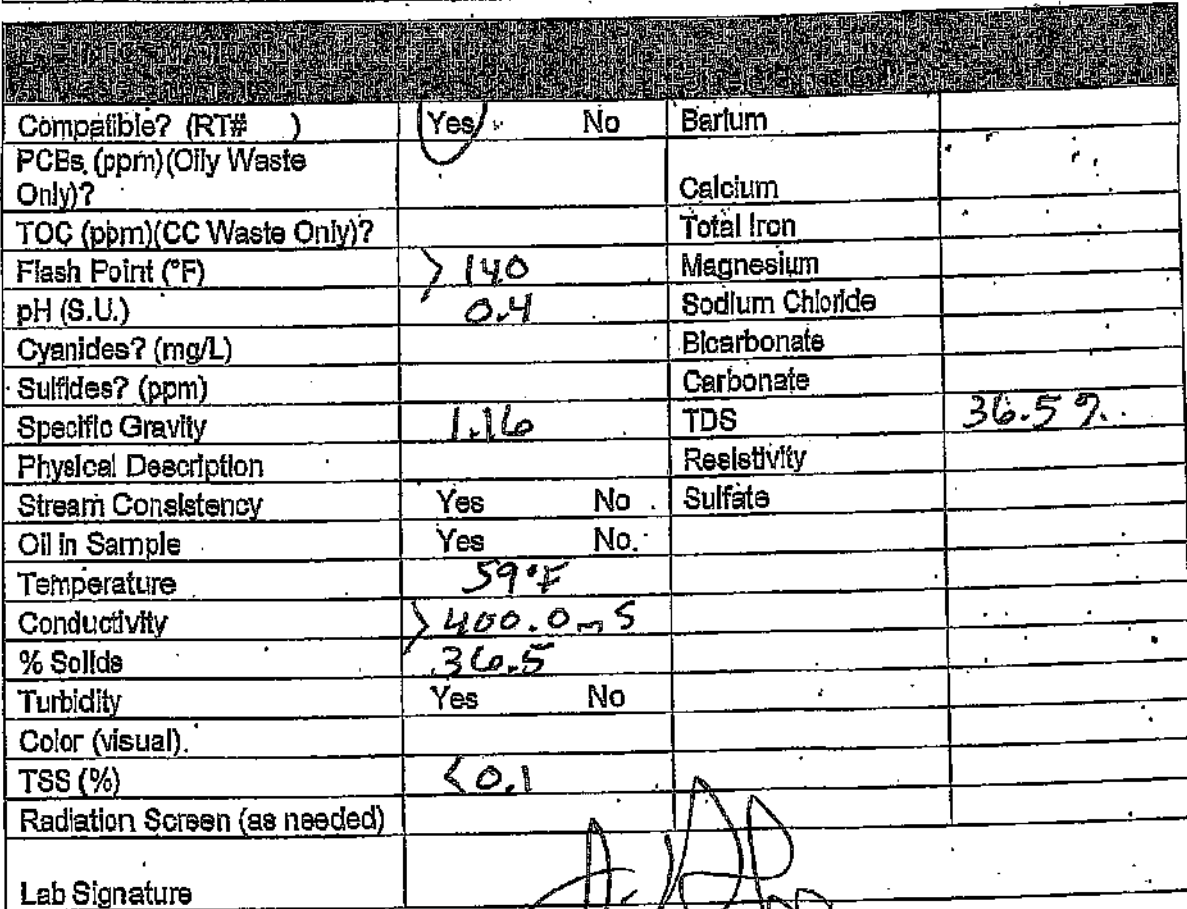 Compatible? (RT# ) Yes No Barium
PCBs (ppm)(Oily Waste
Only)? Calcium
TOC (ppm)(CC Waste Only)? Total Iron
Flash Point (°F) > 140 Magnesium
pH (S.U.) 0.4 Sodium Chloride
Cyanides? (mg/L) Bicarbonate
Sulfides? (ppm) Carbonate
Specific Gravity 1.16 TDS 36.5 %
Physical Description Resistivity
Stream Consistency Yes No Sulfate
Oil in Sample Yes No
Temperature 59°F
Conductivity > 400.0 mS
% Solids 36.5
Turbidity Yes No
Color (visual)
TSS (%) < 0.1
Radiation Screen (as needed)
Lab Signature